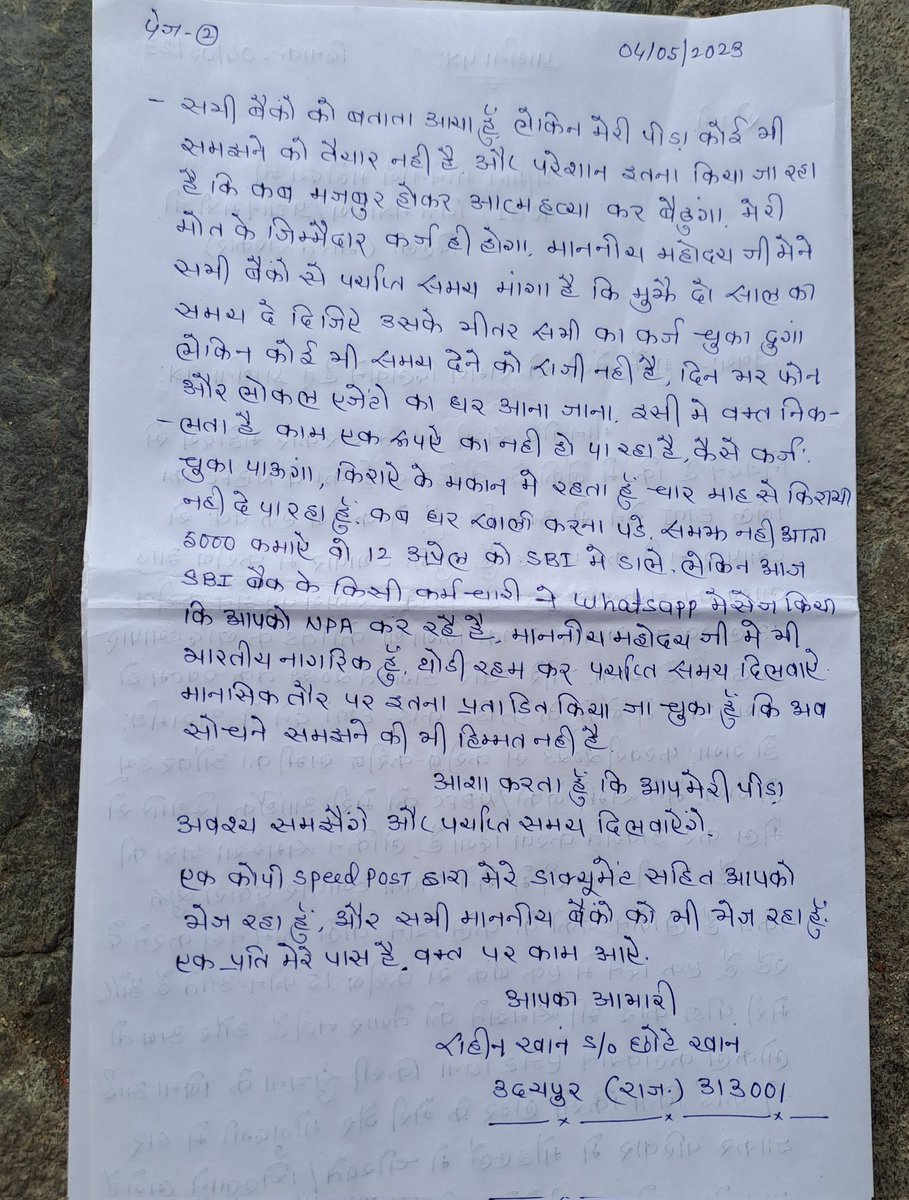 पेज-②
04/05/2023
- सभी बैंको को बताता आया हुँ लेकिन मेरी पीडा कोई भी
समझने को तैयार नही है और परेशान इतना किया जा रहा
है कि कब मजबुर होकर आत्महत्या कर बैठुंगा. मेरी
मोत के जिम्मैदार कर्ज ही होगा. माननीय महोदय जी मेने
सभी बैंको से पर्याप्त समय मांगा है कि मुझै दो साल का
समय दे दिजिऐ उसके भीतर सभी का कर्ज चुका दुगां
लेकिन कोई भी समय देने को राजी नही है, दिन भर फोन
और लोकल एजेंटो का घर आना जाना. इसी मे वक्त निक-
- लता है काम एक रूपऐ का नही हो पा रहा है, कैसे कर्ज.
चुका पाऊगा, किराऐ के मकान मे रहता हुँ चार माह से किराया
नही दे पा रहा हुँ. कब घर खाली करना पडे. समझ नही आता
5000 कमाऐ वो 12 अप्रेल को SBI मे डाले. लेकिन आज
SBI बैंक के किसी कर्मचारी ने whatsapp मेसेज किया
कि आपको NPA कर रहै है, माननीय महोदय जी मे भी
भारतीय नागरिक हुँ थोडी रहम कर पर्याप्त समय दिलवाऐ.
मानसिक तौर पर इतना प्रताडित किया जा चुका हुँ कि अब
सोचने समझने की भी हिम्मत नही है.
आशा करता हुँ कि आप मेरी पीडा
अवश्य समझैंगे और पर्याप्त समय दिलवाऐंगे.
एक कोपी Speed POST द्वारा मेरे डाक्यूमेंट सहित आपको
भेज रहा हुँ, और सभी माननीय बैंको को भी भेज रहा हुँ.
एक प्रति मेरे पास है. वक्त पर काम आऐ.
आपका आभारी
राहीन खान S/o छोटे खान
उदयपुर (राज.) 313001